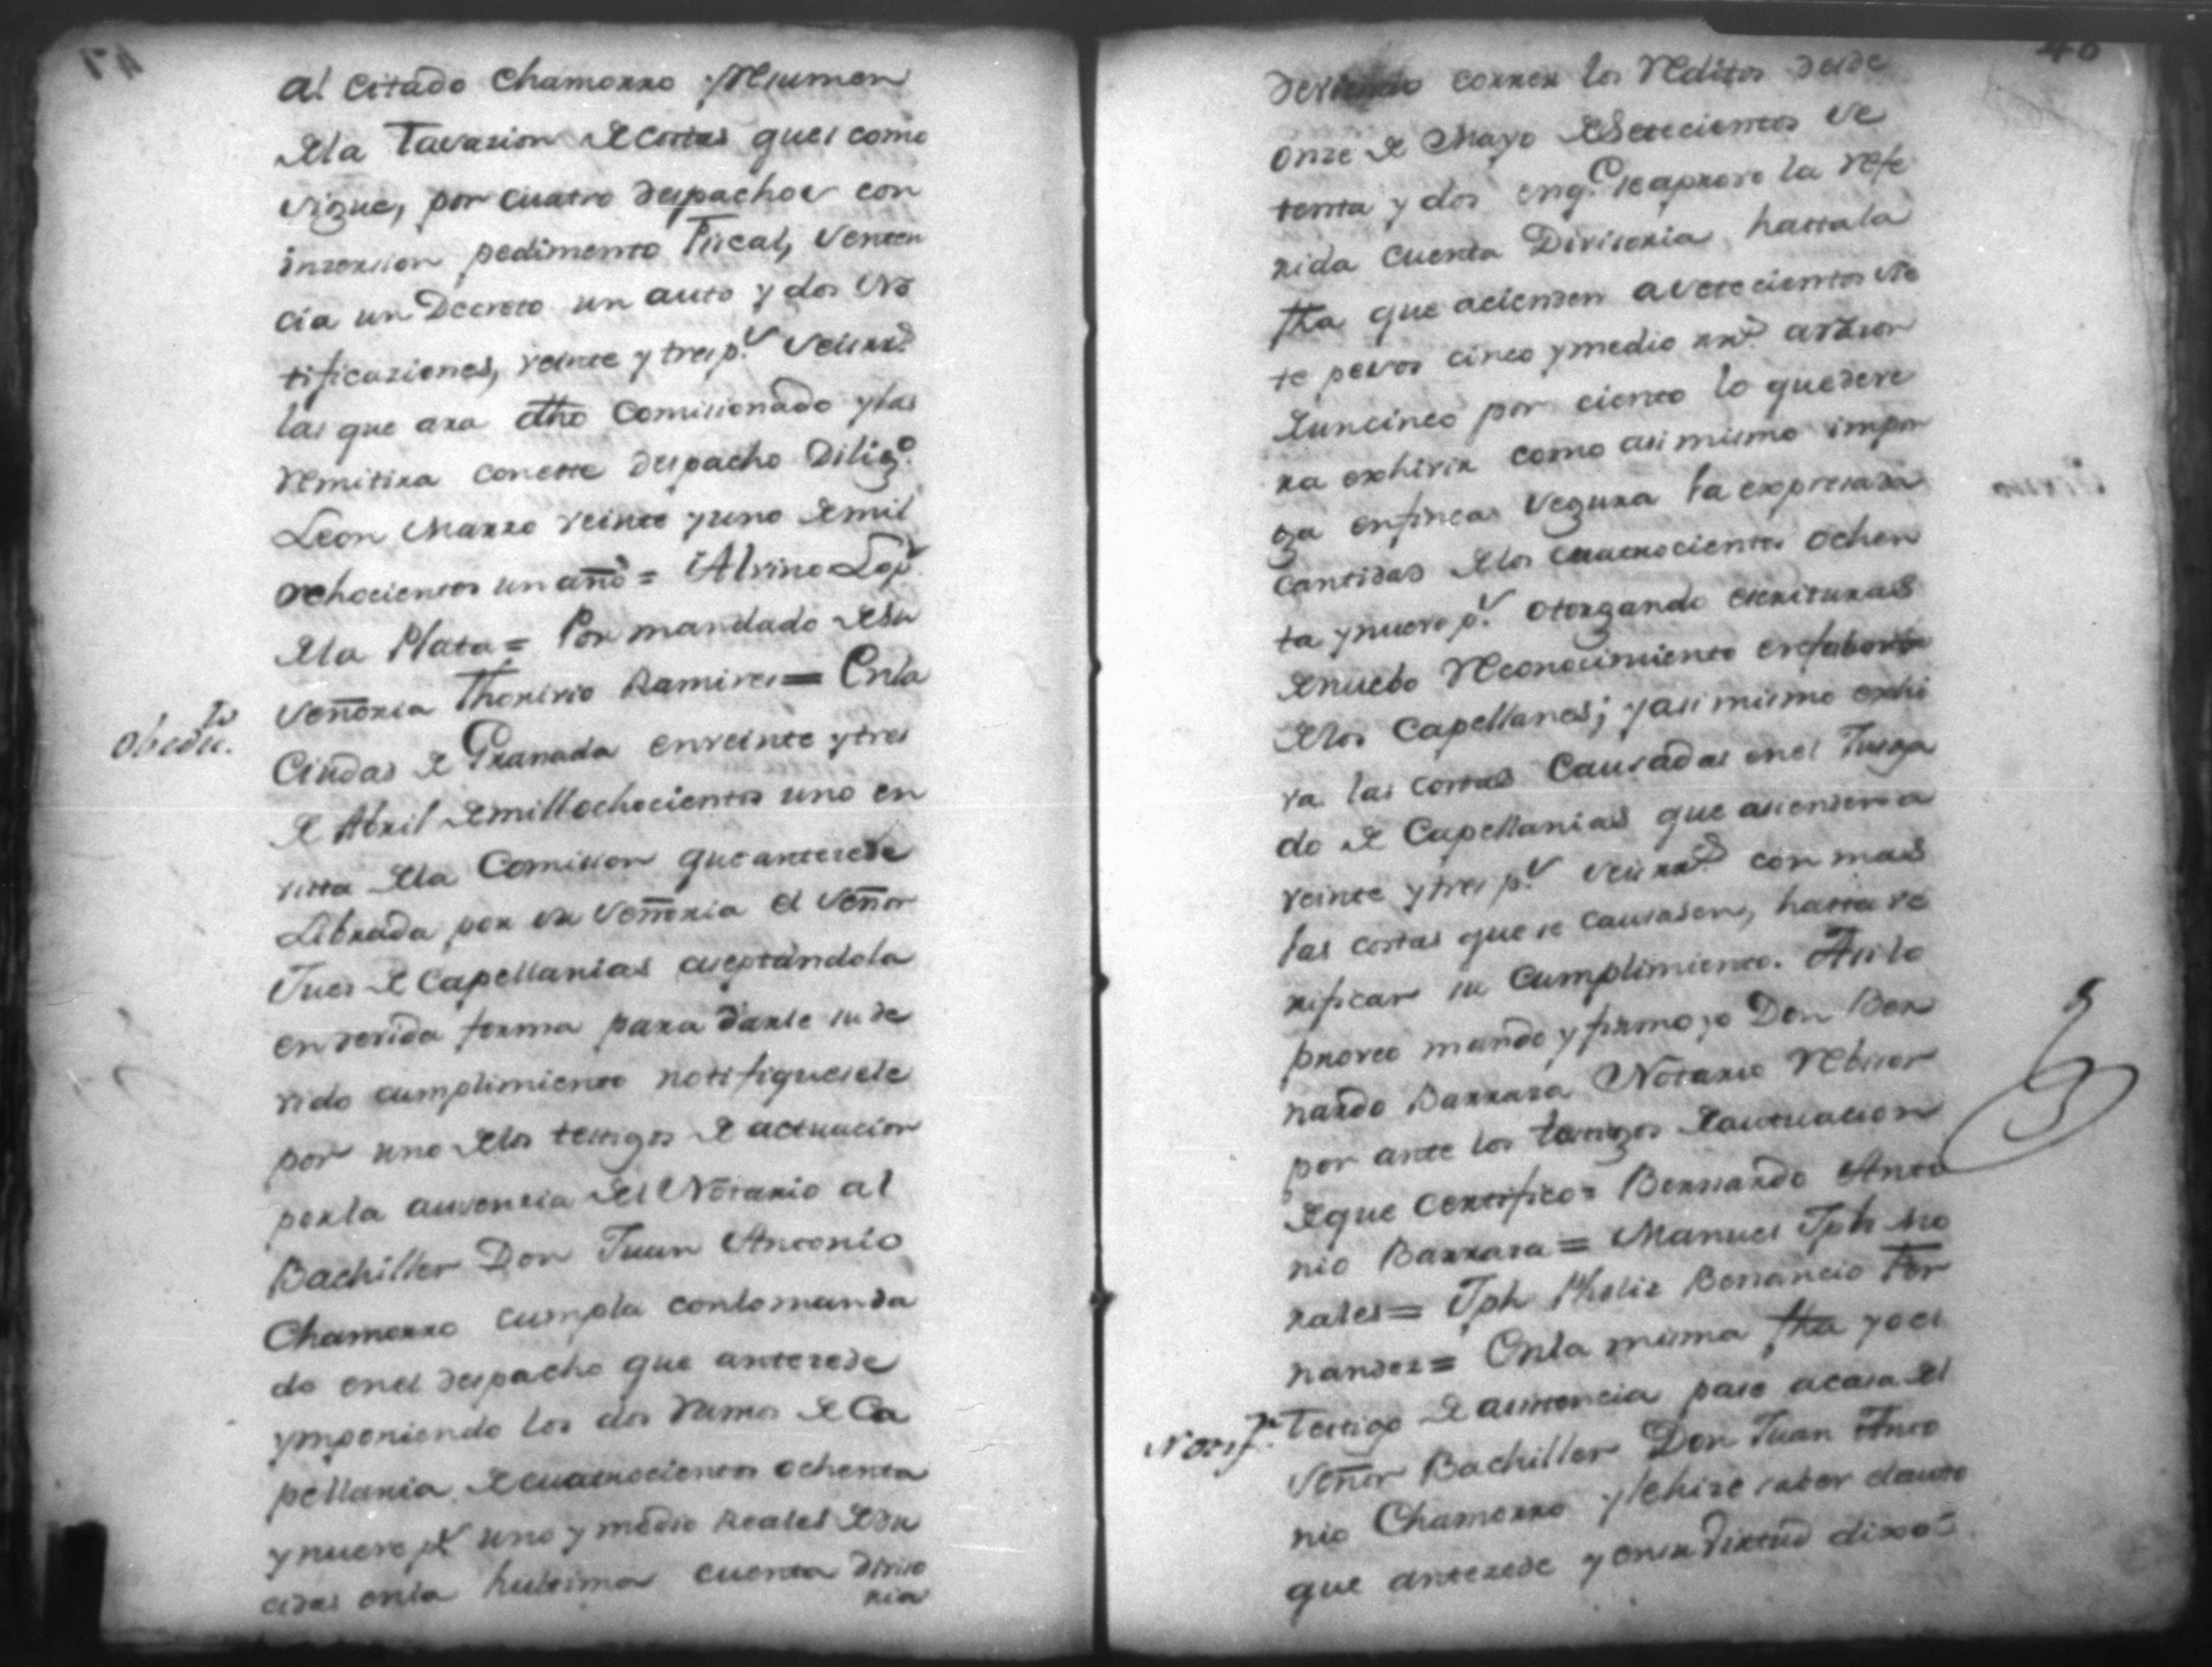 al citado Chamorro y Resumen
de la Tasazion de costas que es como
sigue, por cuatro despachos con
inzercion pedimento Fiscal, senten
cia un Decreto un auto y dos No
tificaziones, veinte y tres p.s seis rr.s
las que ara dho Comisionado y las
Remitira con este despacho Dilig.o
Leon Marzo veinte y uno de mil
ochocientos un año = Alvino Lop.s
de la Plata = Por mandado de su
Señoria Thorivio Ramires = En la
Obedec.to
Ciudad de Granada en veinte y tres
de Abril de mill ochocientos uno en
vista de la Comision que anterede
Librada por su Señoria el Señor
Jues de Capellanias aseptandola
en devida forma para darle su de
vido cumplimiento notifiquesele
por uno de los testigos de actuacion
por la ausencia del Notario al
Bachiller Don Juan Antonio
Chamorro cumpla con lo manda
do en el despacho que anterede
ymponiendo los dos Ramos de Ca
pellania de cuatrocientos ochenta
y nueve p.s uno y medio Reales dedu
cidas en la hultima cuenta Diviso
ria
48
deviendo correr los Reditos desde
onze de Mayo de Setecientos Se
tenta y dos en q.e se aprovo la Refe
rida Cuenta Divisoria, hasta la
fha que acienden a Setecientos Sie
te pesos cinco y medio rr.s a razon
de un cinco por ciento lo que deve
ra exhivir como asi mismo impon
ga en finca segura la expresada
cantidad de los cuatrocientos ochen
ta y nueve p.s otorgando escrituras
de nuebo Reconocimiento en fabor
de los Capellanes; y asi mismo exhi
va las costas Causadas en el Jusga
do de Capellanias que asienden a
veinte y tres p.s seis rr.s con mas
las costas que se causasen, hasta ve
rificar su Cumplimiento. Asi lo
proveo mando y firmo yo Don Ber
nardo Barrara Notario Rebisor
por ante los testigos de actuacion
de que Certifico = Bernardo Anto
nio Barrara = Manuel Jph Mo
rales = Jph Pheliz Benancio Fer
nandez = En la misma fha yo el
Notif.n
Testigo de asistencia pase a casa del
Señor Bachiller Don Juan Anto
nio Chamorro y le hize saber el auto
que anterede y en su virtud dixo =